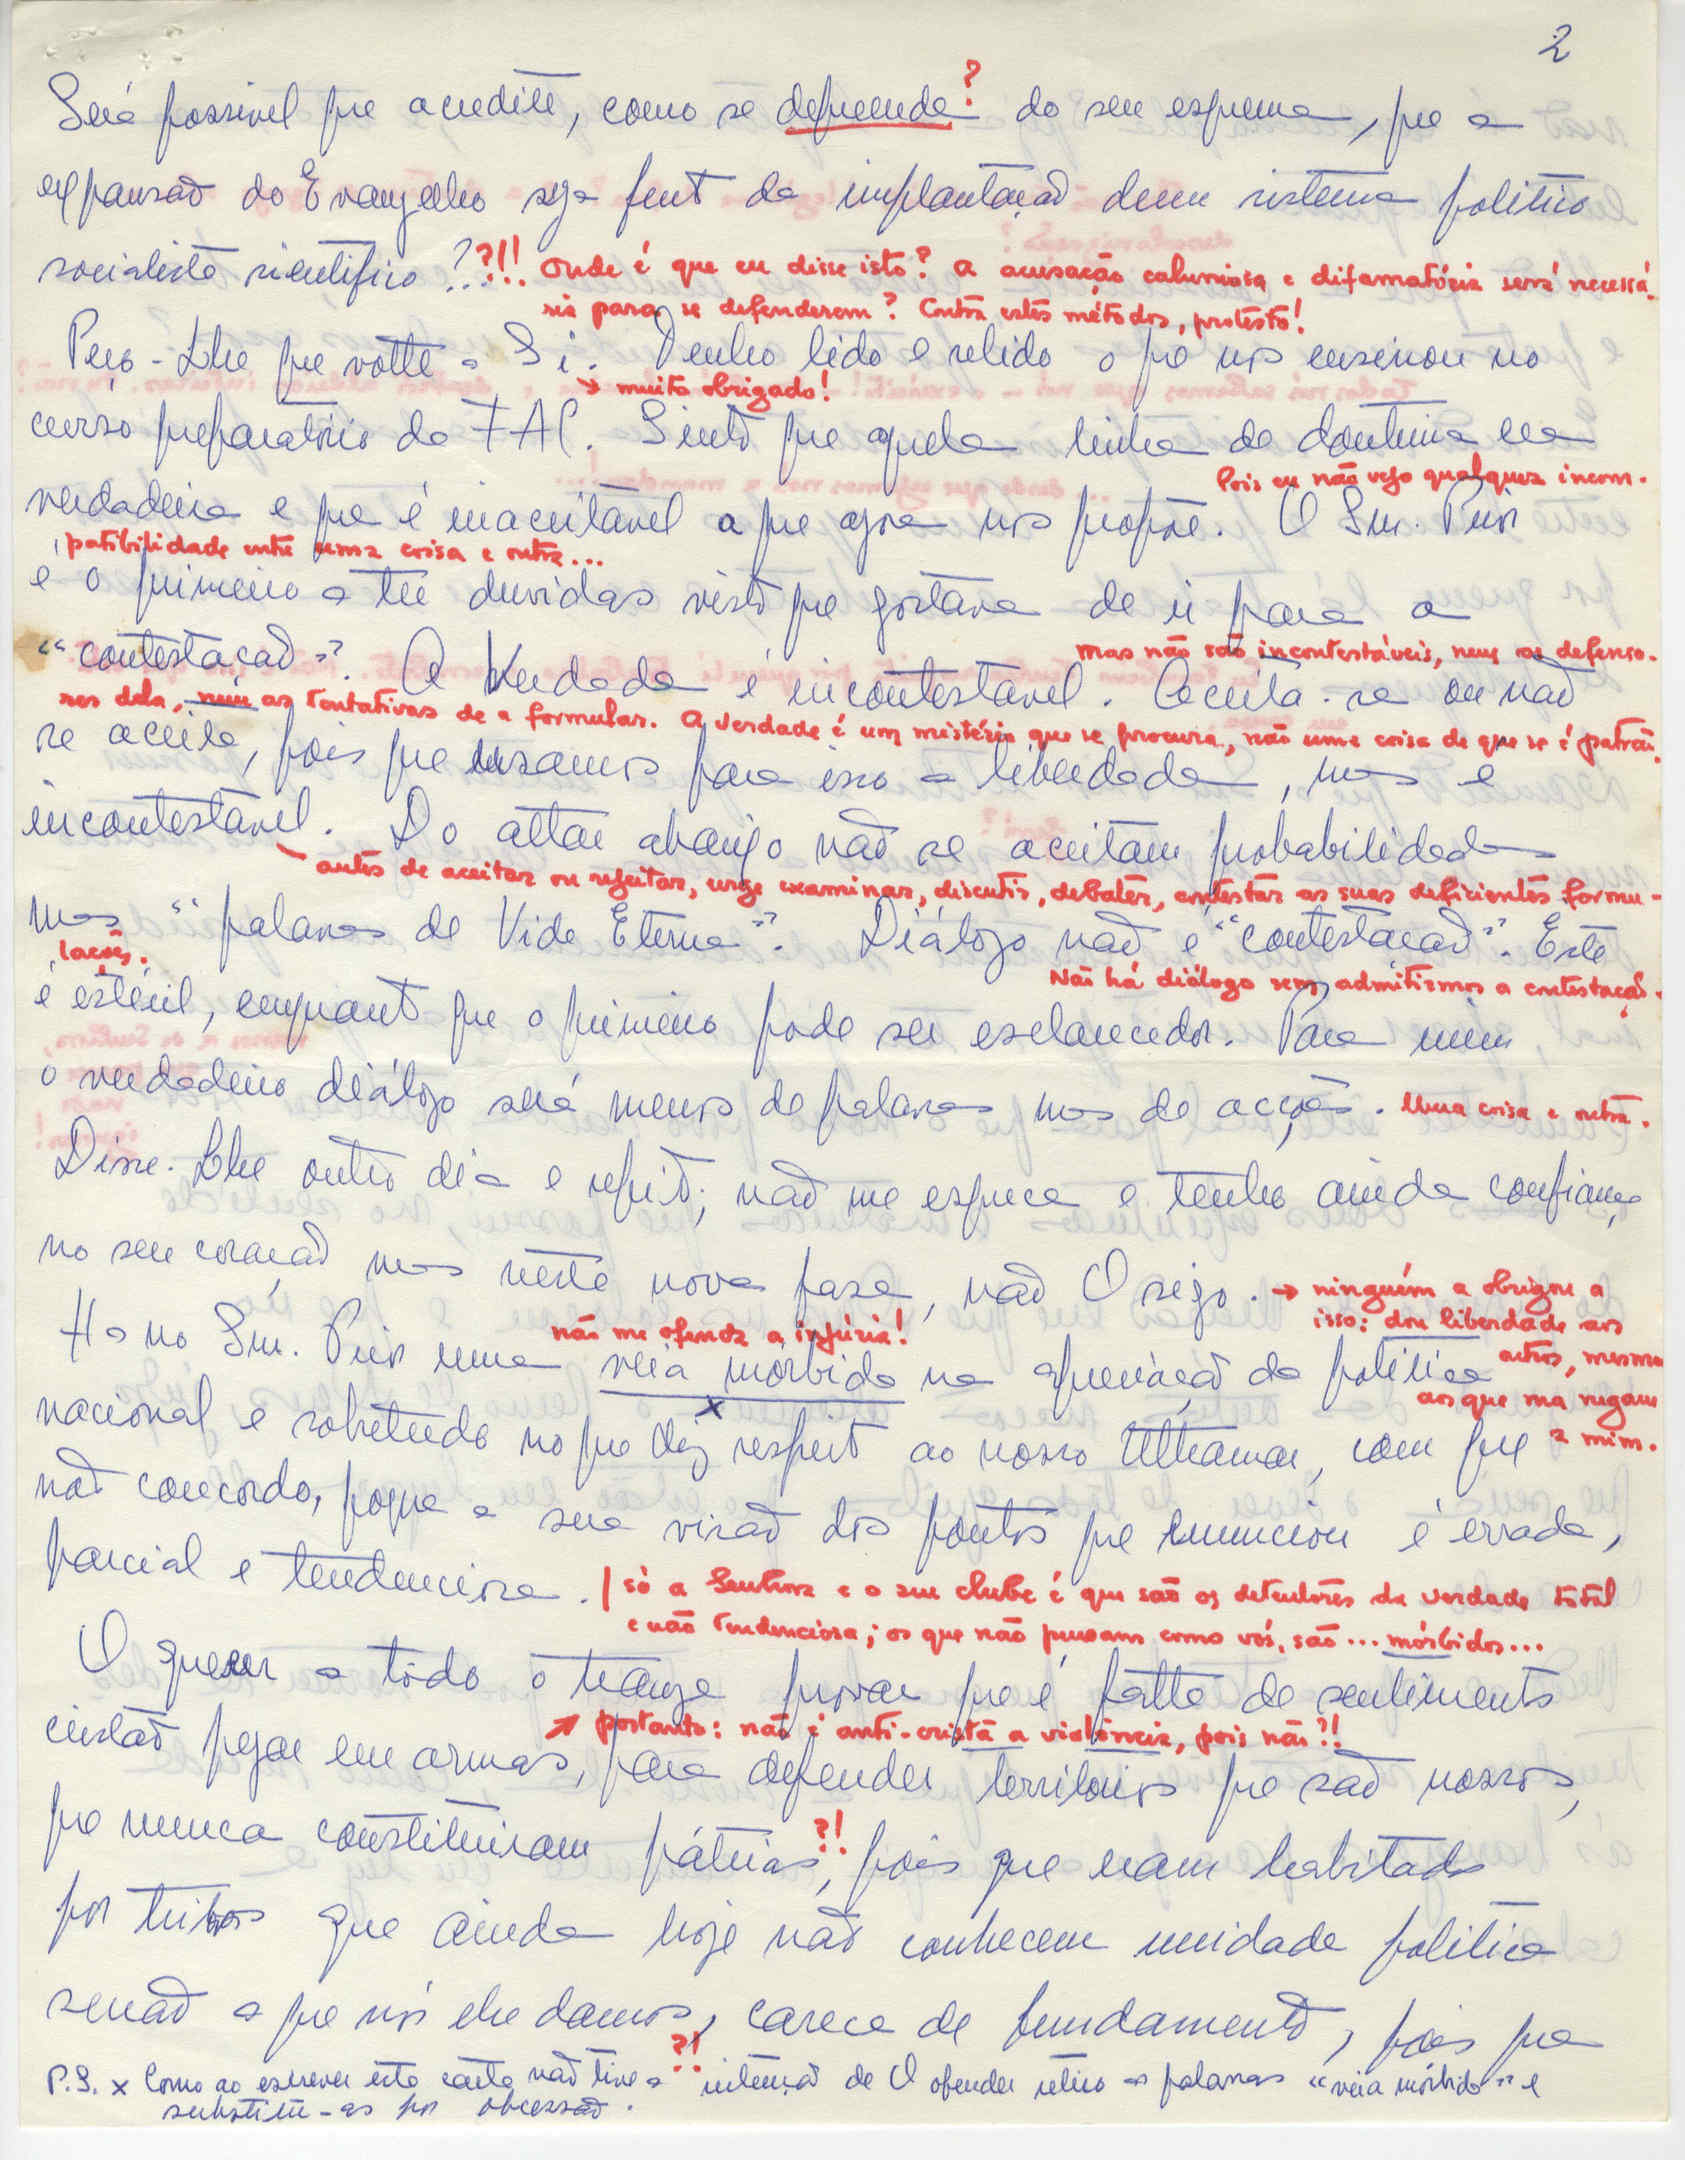 2
Será possivel que acredite, como se depreende? do seu esquema, que a
expansão do Evangelho seja fruto da implantação dum sistema politico
socialista cientifico?
??!! Onde é que eu disse isto? A acusação caluniosa e difamatória será necessá-
ria para se defenderem? Contra estes métodos, protesto!
Peço-Lhe que volte a Si. Tenho lido e relido o que nos ensinou no
→ muito obrigado!
curso preparatório da FAC. Sinto que aquela linha de doutrina era
Pois eu não vejo qualquer incom-
verdadeira e que é inaceitável a que agora nos propõe. O Snr. Prior
patibilidade entre uma coisa e outra...
é o primeiro a ter duvidas visto que gostava de ir para a
"contestação". A Verdade é incontestavel. Aceita-se ou não
mas não são incontestáveis, nem os defenso-
res dela, nem as tentativas de a formular. A verdade é um mistério que se procura, não uma coisa de que se é patrão.
se aceita, pois que usamos para isso a liberdade, mas é
incontestável. Do altar abaixo não se aceitam probabilidades
antes de aceitar ou rejeitar, urge examinar, discutir, debater, contestar as suas deficientes formu-
lações.
mas "palavras de Vida Eterna". Diálogo não é "contestação". Este
Não há diálogo sem admitirmos a contestação.
é estéril, enquanto que o primeiro pode ser esclarecedor. Para mim
o verdadeiro diálogo será menos de palavras mas de acções. Uma coisa e outra.
Disse-Lhe outro dia e repito; não me esquece e tenho ainda confiança
no seu coração mas nesta nova fase, não O sigo.
→ ninguém a obrigou a
isso: dou liberdade aos
outros, mesmo
aos que ma negam
a mim.
Ha no Snr. Prior uma veia mórbida na apreciação da politica
não me ofende a injúria!
x
nacional e sobretudo no que diz respeito ao nosso Ultramar, com que
não concordo, porque a sua visão dos pontos que enunciou é errada,
parcial e tendenciosa.
só a Senhora e o seu clube é que são os detentores da verdade total
e não tendenciosa; os que não pensam como vós, são... mórbidos...
O querer a todo o transe provar que é falta de sentimento
→ portanto: não é anti-cristã a violência, pois não?!
cristão pegar em armas, para defender territórios que são nossos,
que nunca constituiram pátrias?!, pois que eram habitados
por tribos que ainda hoje não conhecem unidade politica
senão a que nós lhe damos, carece de fundamento, pois que
?!
P.S. x Como ao escrever esta carta não tive a intenção de O ofender retiro as palavras "veia mórbida" e
substitui-as por obcessão.